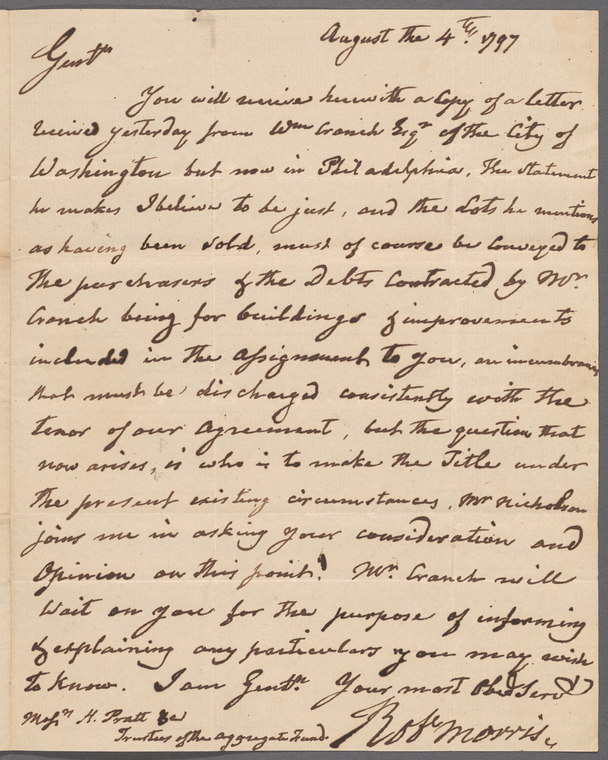 August the 4th. 1797
Gentn
You will receive herewith a Copy of a letter
received yesterday from Wm Cranch Esqr of the City of
Washington but now in Philadelphia, The statement
he makes I believe to be just, and the Lots he mentions
as having been sold, must of course be Conveyed to
the purchasers & the Debts Contracted by Mr.
Cranch being for buildings & improvements
included in the assignment to you, are incumbrances
that must be discharged consistently with the
tenor of our agreement, but the question that
now arises, is who is to make the Title under
the present existing circumstances, Mr Nicholson
joins me in asking your consideration and
Opinion on this point. Mr. Cranch will
Wait on you for the purpose of informing
& explaining any particulars you may wish
to know. I am Gentn. Your most Obed Servt
Messrs H. Pratt &c
Trustees of the Aggregate Fund.
Robt Morris